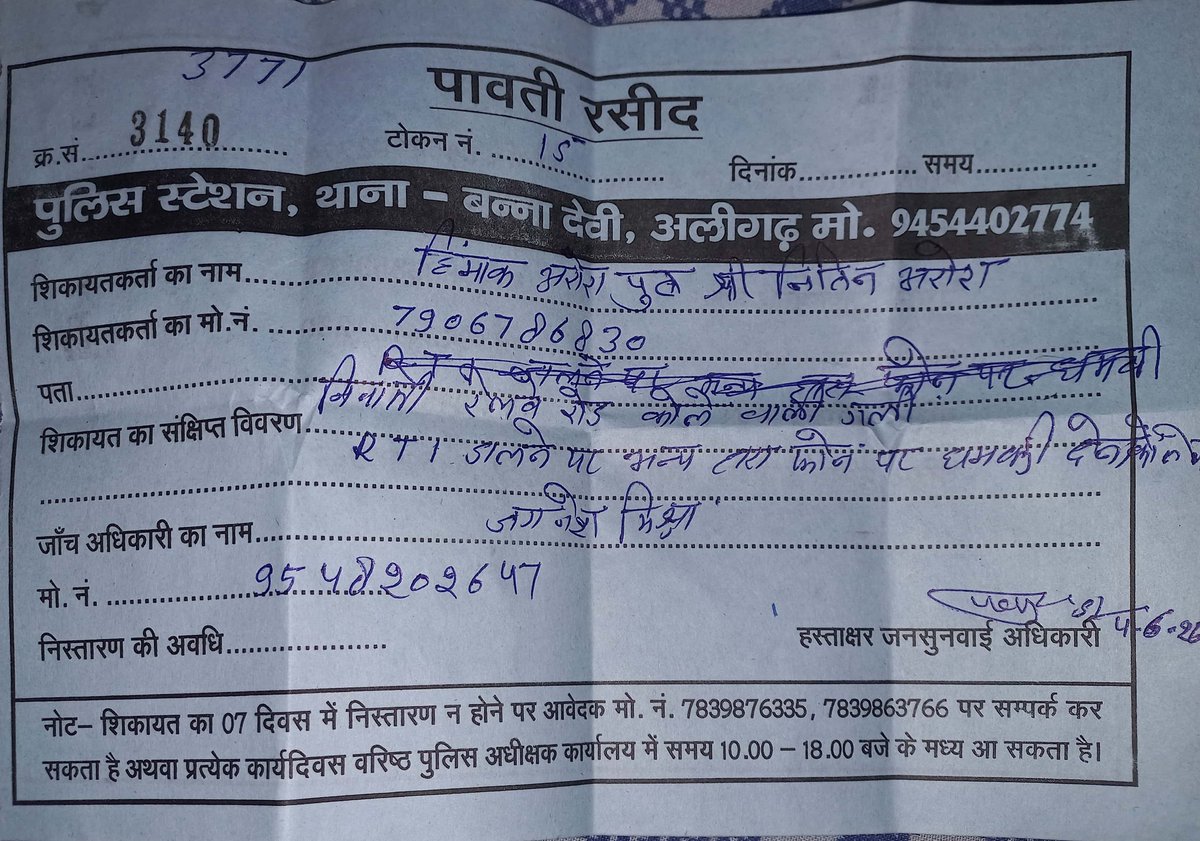 3771
पावती रसीद
क्र.सं. 3140 टोकन नं. 15 दिनांक समय
पुलिस स्टेशन, थाना - बन्ना देवी, अलीगढ़ मो. 9454402774
शिकायतकर्ता का नाम अरोरा पुत्र श्री नितिन अरोरा
शिकायतकर्ता का मो.नं. 7906786830
पता
रेलवे रोड कोल वाली गली
शिकायत का संक्षिप्त विवरण
RTI डालने पर अन्य द्वारा फोन पर धमकी
जाँच अधिकारी का नाम
मो. नं. 9548202647
4-6-26
निस्तारण की अवधि हस्ताक्षर जनसुनवाई अधिकारी
नोट– शिकायत का 07 दिवस में निस्तारण न होने पर आवेदक मो. नं. 7839876335, 7839863766 पर सम्पर्क कर
सकता है अथवा प्रत्येक कार्यदिवस वरिष्ठ पुलिस अधीक्षक कार्यालय में समय 10.00 – 18.00 बजे के मध्य आ सकता है।